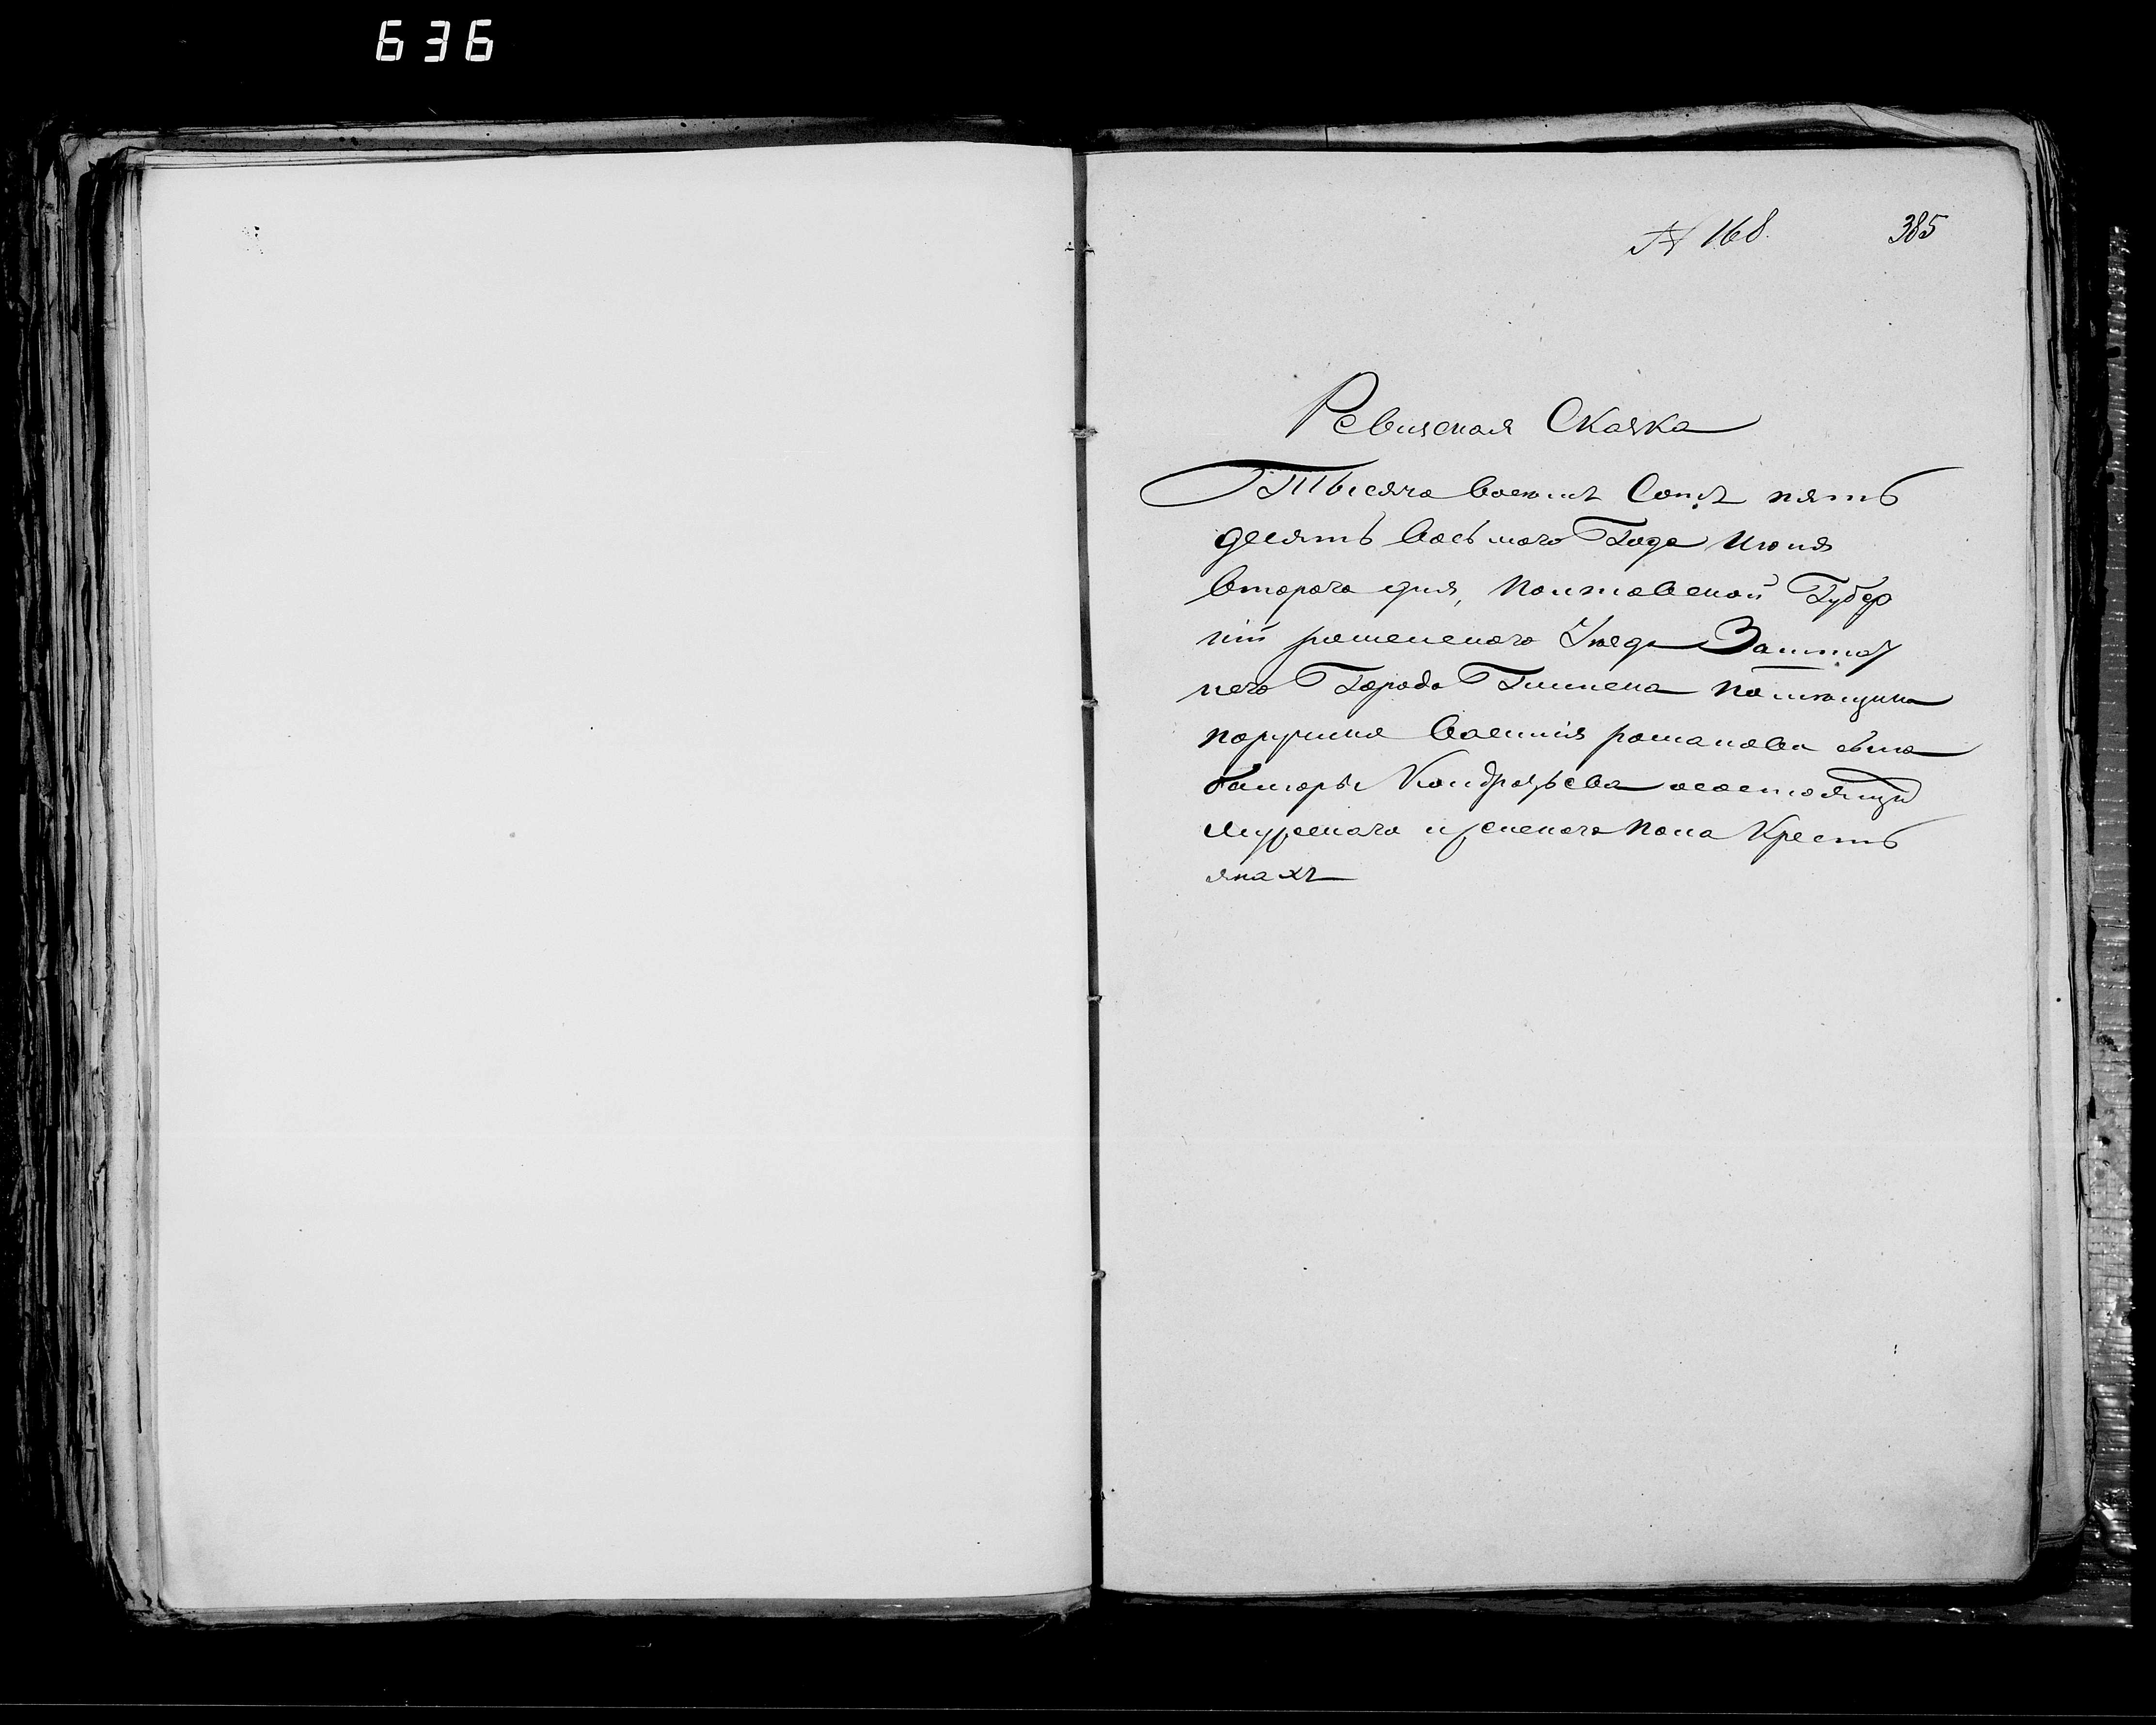 636
№ 168.
385
Ревизская Сказка
Тысяча восемъ Сотъ пять
десять восьмого Года Июня
второго дня, Полтавской Губер
ніи роменского Уезда Заштат
него Города Глинска помещика
порутчика Василия романова сына
Кондратьева о состоящих
мужеского и женского пола Кресть
янахъ